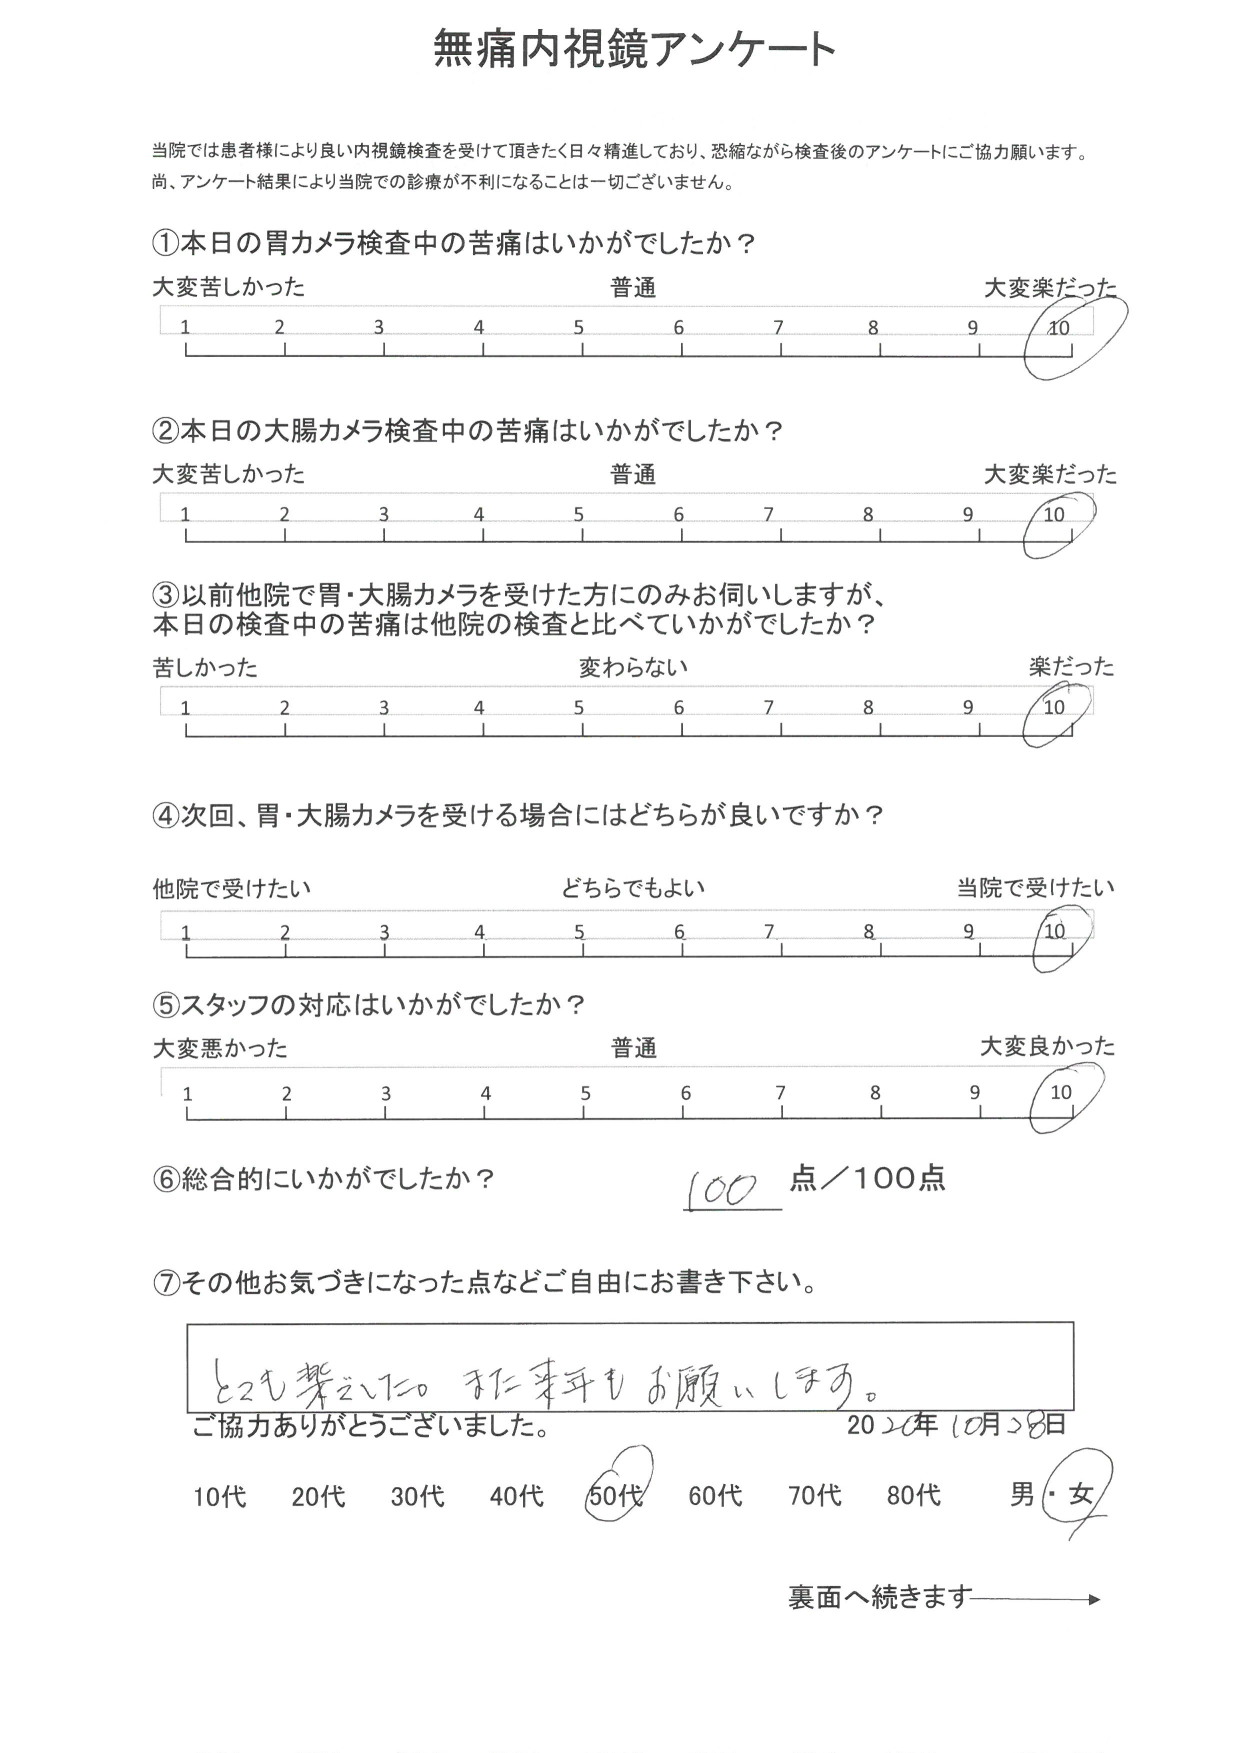 無痛内視鏡アンケート
当院では患者様により良い内視鏡検査を受けて頂きたく日々精進しており、恐縮ながら検査後のアンケートにご協力願います。
尚、アンケート結果により当院での診療が不利になることは一切ございません。
①本日の胃カメラ検査中の苦痛はいかがでしたか？
大変苦しかった 普通 大変楽だった
1 2 3 4 5 6 7 8 9 10
②本日の大腸カメラ検査中の苦痛はいかがでしたか？
大変苦しかった 普通 大変楽だった
1 2 3 4 5 6 7 8 9 10
③以前他院で胃・大腸カメラを受けた方にのみお伺いしますが、
本日の検査中の苦痛は他院の検査と比べていかがでしたか？
苦しかった 変わらない 楽だった
1 2 3 4 5 6 7 8 9 10
④次回、胃・大腸カメラを受ける場合にはどちらが良いですか？
他院で受けたい どちらでもよい 当院で受けたい
1 2 3 4 5 6 7 8 9 10
⑤スタッフの対応はいかがでしたか？
大変悪かった 普通 大変良かった
1 2 3 4 5 6 7 8 9 10
⑥総合的にいかがでしたか？ 100 点／100点
⑦その他お気づきになった点などご自由にお書き下さい。
とても楽でした。また来年もお願いします。
ご協力ありがとうございました。 2020年10月28日
10代 20代 30代 40代 50代 60代 70代 80代 男・女
裏面へ続きます